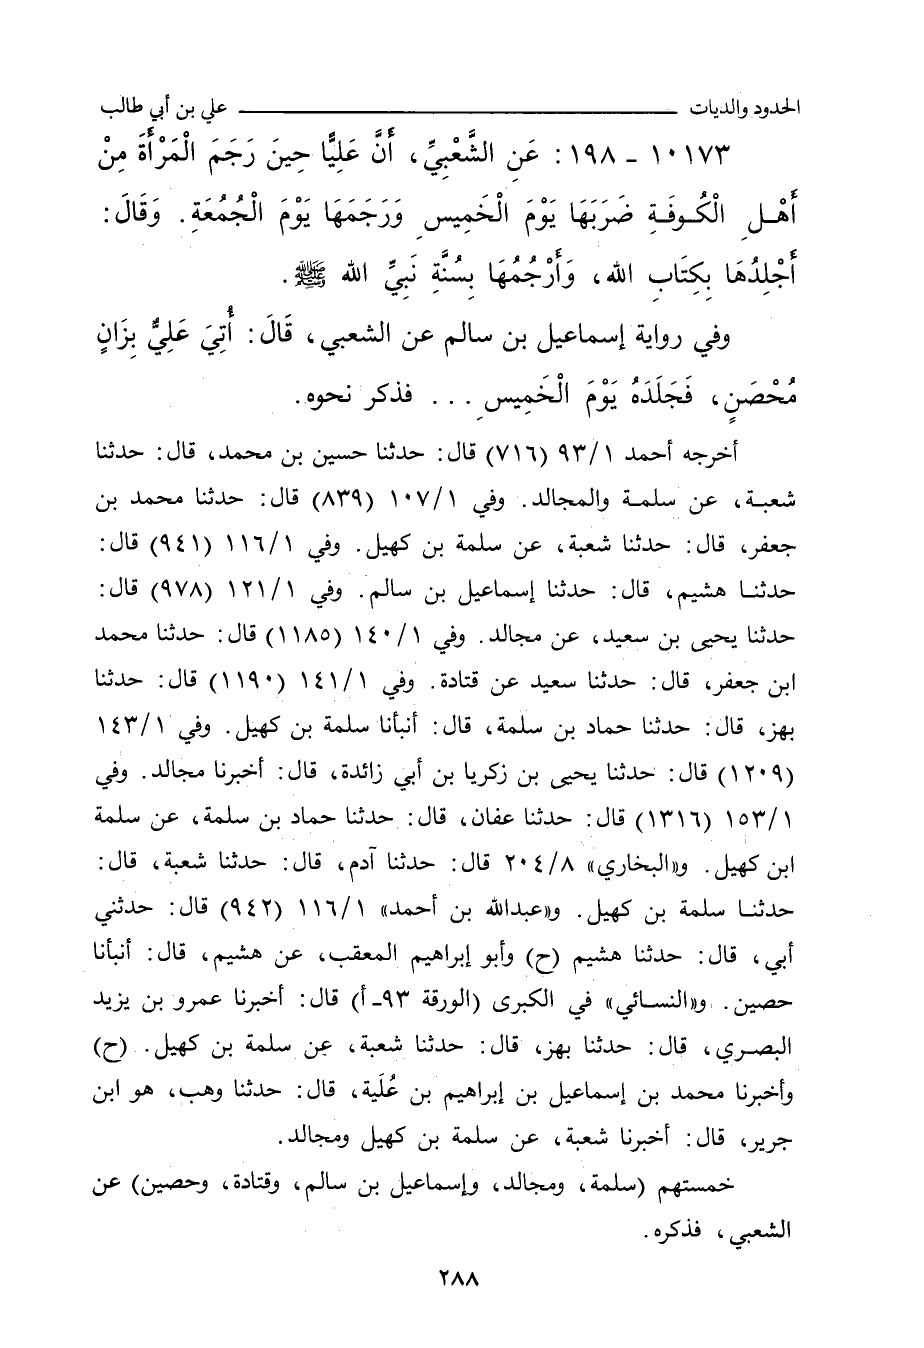 الحدود والديات ــــــــــــــــــــــــــــــــــــــ علي بن أبي طالب
١٠١٧٣ ـ ١٩٨ : عَنِ الشَّعْبِيِّ، أَنَّ عَلِيًّا حِينَ رَجَمَ الْمَرْأَةَ مِنْ
أَهْـلِ الْكُـوفَـةِ ضَرَبَهَا يَوْمَ الْخَمِيسِ وَرَجَمَهَا يَوْمَ الْجُمُعَةِ. وَقَالَ:
أَجْلِدُهَا بِكِتَابِ الله، وَأَرْجُمُهَا بِسُنَّةِ نَبِيِّ الله ﷺ.
وفي رواية إسماعيل بن سالم عن الشعبي، قَالَ: أُتِيَ عَلِيٌّ بِزَانٍ
مُحْصَنٍ، فَجَلَدَهُ يَوْمَ الْخَمِيسِ . . . فذكر نحوه.
أخرجه أحمد ٩٣/١ (٧١٦) قال: حدثنا حسين بن محمد، قال: حدثنا
شعبـة، عن سلمـة والمجالد. وفي ١٠٧/١ (٨٣٩) قال: حدثنا محمد بن
جعفر، قال: حدثنا شعبة، عن سلمة بن كهيل. وفي ١١٦/١ (٩٤١) قال:
حدثنـا هشيم، قال: حدثنا إسماعيل بن سالم. وفي ١٢١/١ (٩٧٨) قال:
حدثنا يحيى بن سعيد، عن مجالد. وفي ١٤٠/١ (١١٨٥) قال: حدثنا محمد
ابن جعفر، قال: حدثنا سعيد عن قتادة. وفي ١٤١/١ (١١٩٠) قال: حدثنا
بهز، قال: حدثنا حماد بن سلمة، قال: أنبأنا سلمة بن كهيل. وفي ١٤٣/١
(١٢٠٩) قال: حدثنا يحيى بن زكريا بن أبي زائدة، قال: أخبرنا مجالد. وفي
١٥٣/١ (١٣١٦) قال: حدثنا عفان، قال: حدثنا حماد بن سلمة، عن سلمة
ابن كهيل. و«البخاري» ٢٠٤/٨ قال: حدثنا آدم، قال: حدثنا شعبة، قال:
حدثنـا سلمة بن كهيل. و«عبدالله بن أحمد» ١١٦/١ (٩٤٢) قال: حدثني
أبي، قال: حدثنا هشيم (ح) وأبو إبراهيم المعقب، عن هشيم، قال: أنبأنا
حصين. و«النسـائي» في الكبرى (الورقة ٩٣ـ أ) قال: أخبرنا عمرو بن يزيد
البصـري، قال: حدثنا بهز، قال: حدثنا شعبة، عن سلمة بن كهيل. (ح)
وأخبرنا محمد بن إسماعيل بن إبراهيم بن عُلَية، قال: حدثنا وهب، هو ابن
جرير، قال: أخبرنا شعبة، عن سلمة بن كهيل ومجالد.
خمستهم (سلمة، ومجالد، وإسماعيل بن سالم، وقتادة، وحصين) عن
الشعبي، فذكره.
٢٨٨